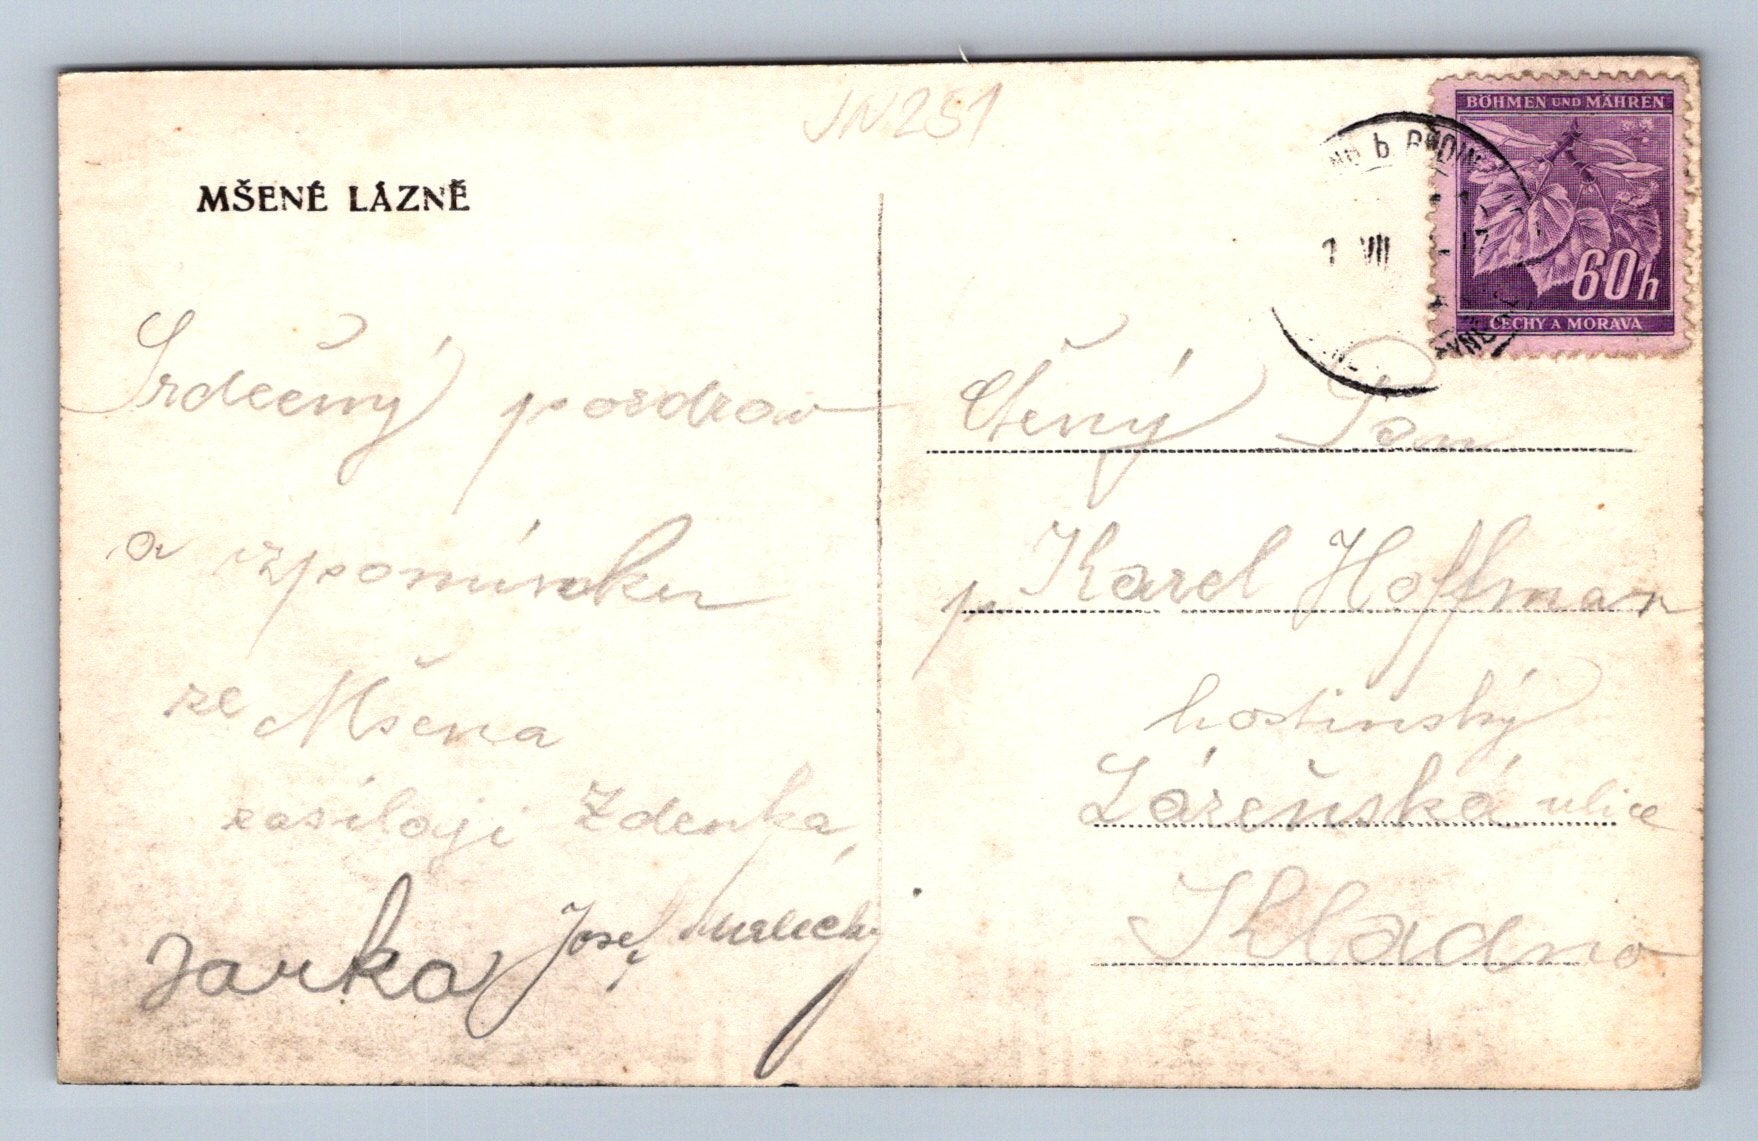 JN251
MŠENÉ LÁZNĚ
BÖHMEN UND MÄHREN
60h
ČECHY A MORAVA
1 VII
Srdečný pozdrav
a vzpomínku
ze Mšena
zasílají Zdenka,
Jarka Josef,
Ctěný Pan
p. Karel Hoffman
hostinský
Lázeňská ulice
Kladno